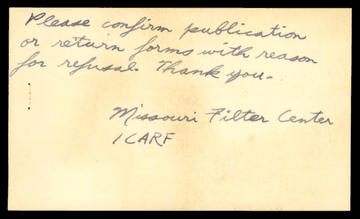 Please confirm publication
or return forms with reason
for refusal. Thank you.
Missouri Filter Center
ICARF